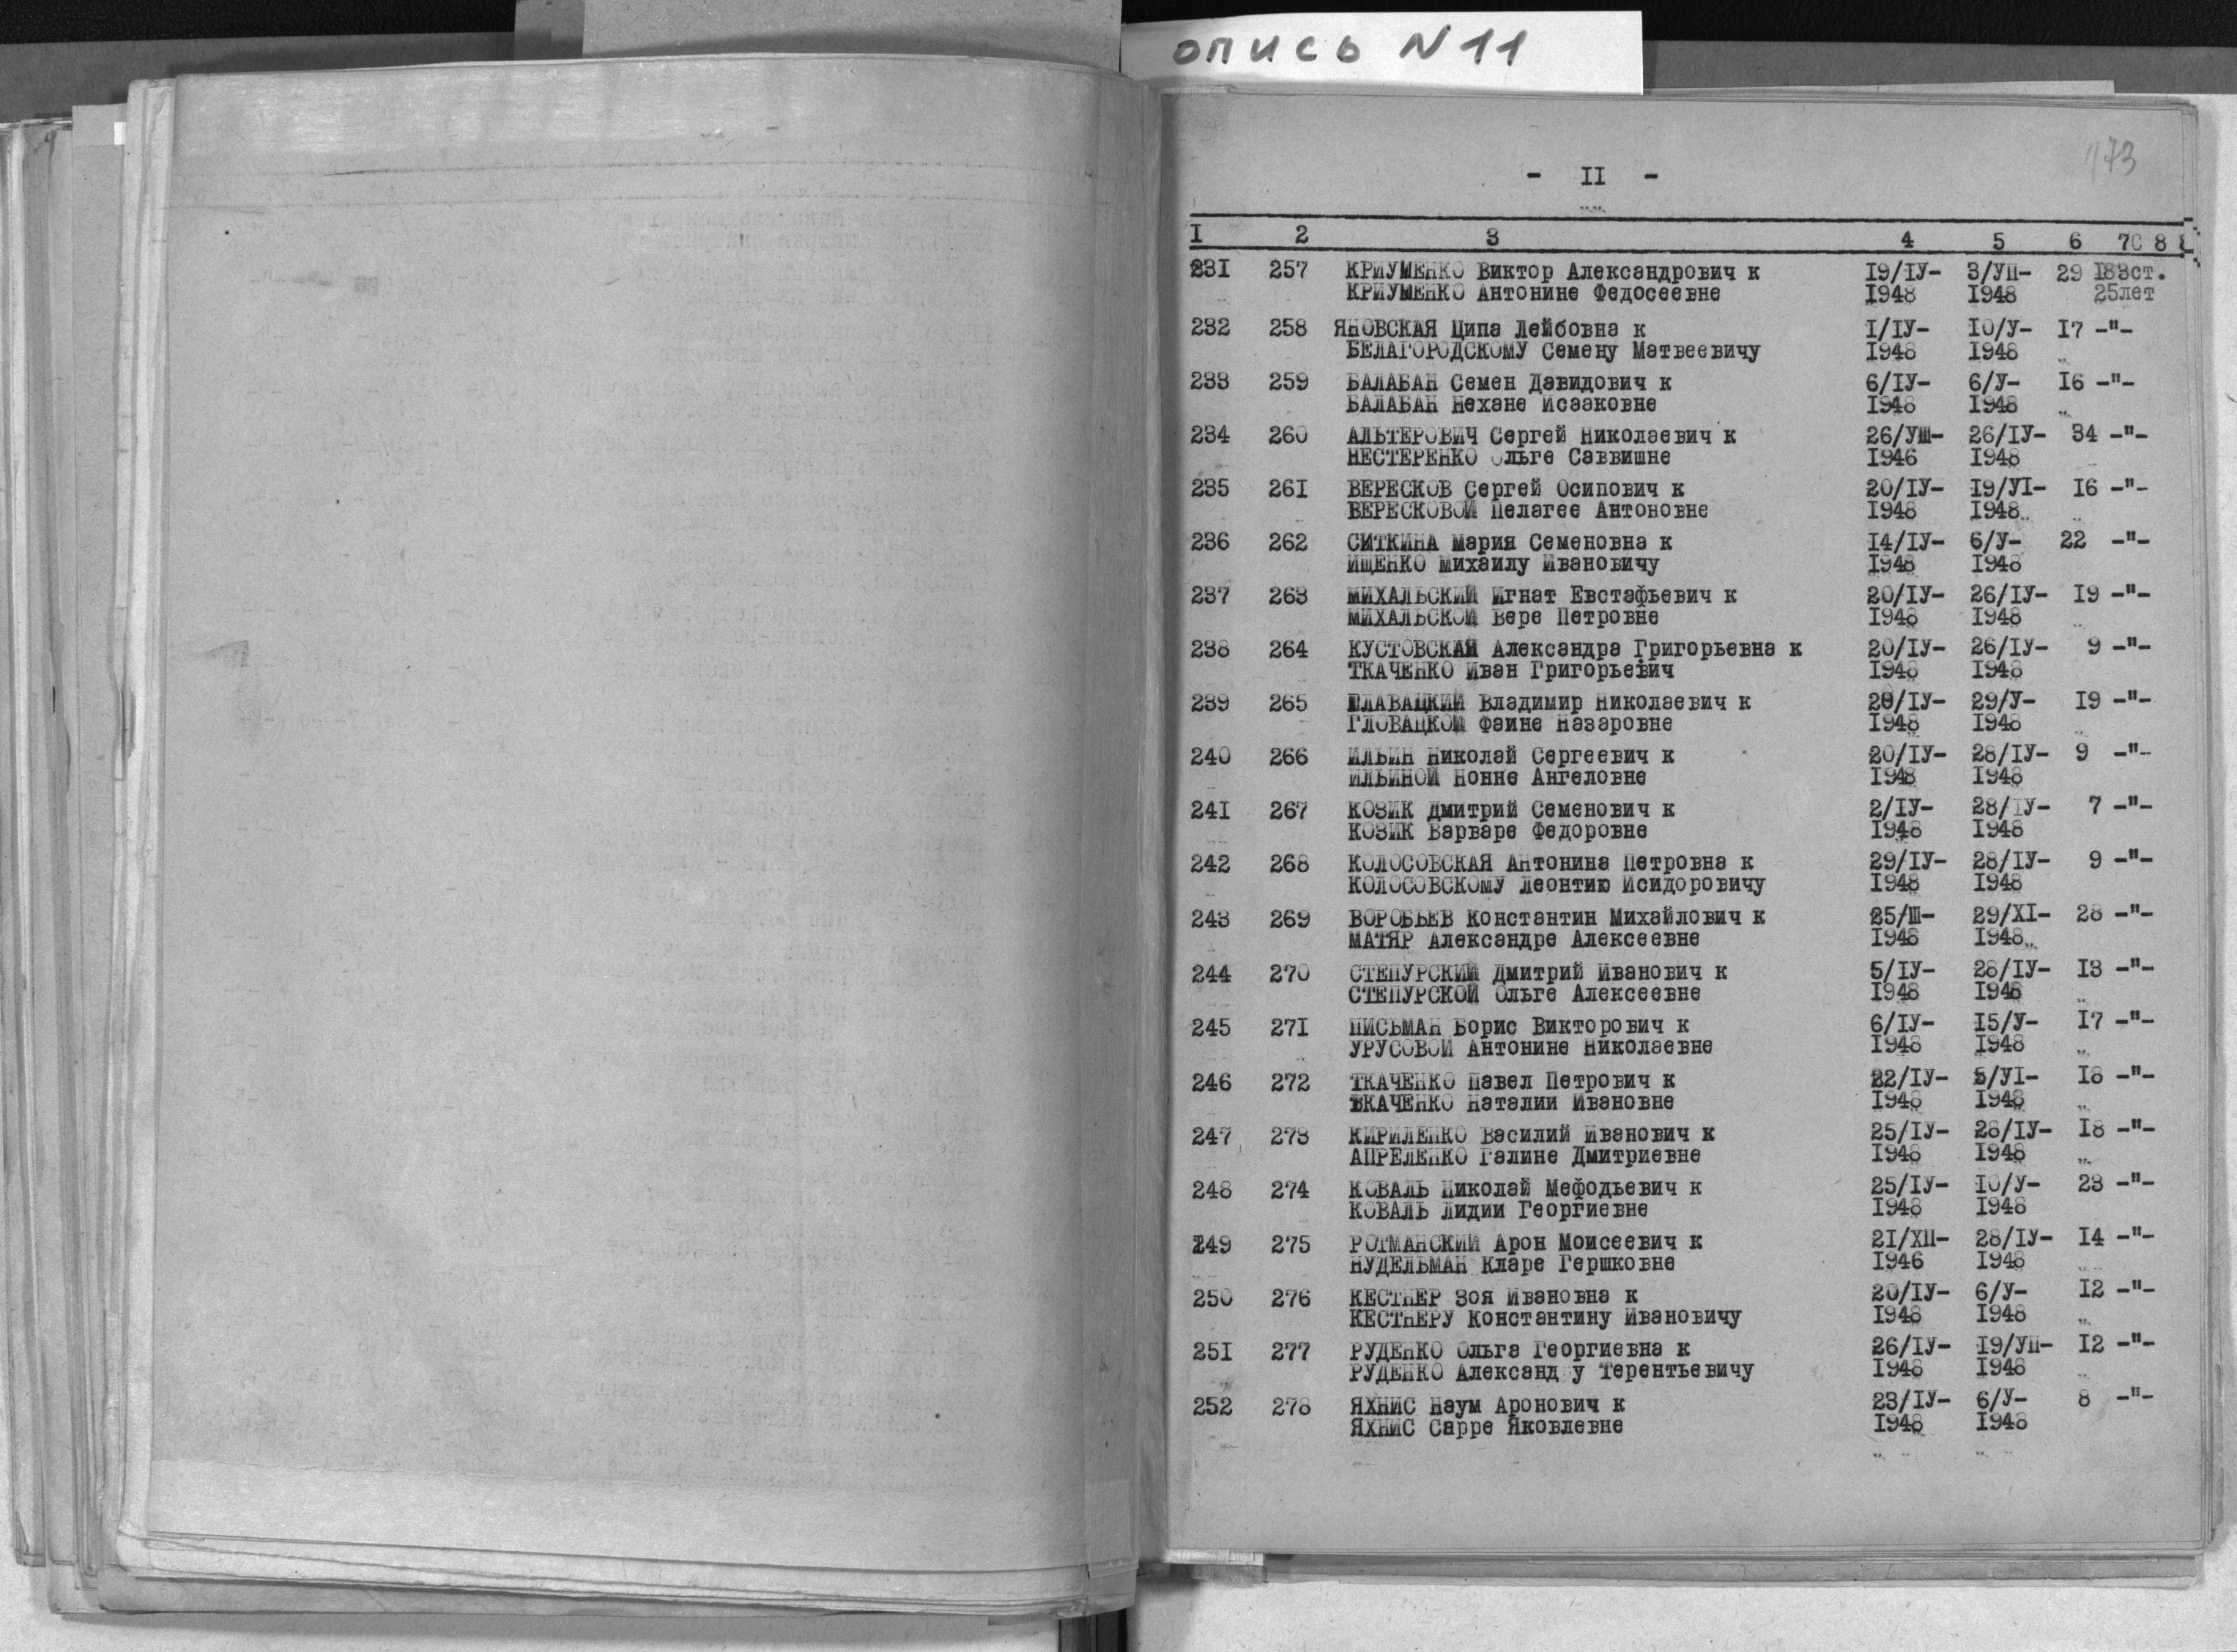 опись N 11
173
- II -
I 2 3 4 5 6 7С 8
231 257 КРИУМЕНКО Виктор Александрович к 19/IУ- 3/УП- 29 183ст.
КРИУМЕНКО Антонине Федосеевне 1948 1948 25лет
232 258 ЯНОВСКАЯ Ципа Лейбовна к I/IУ- I0/У- I7 -"-
БЕЛАГОРОДСКОМУ Семену Матвеевичу I948 I948
233 259 БАЛАБАН Семен Давидович к 6/IУ- 6/У- I6 -"-
БАЛАБАН Нехане Исааковне I948 I948
234 260 АЛЬТЕРОВИЧ Сергей Николаевич к 26/УШ- 26/IУ- 34 -"-
НЕСТЕРЕНКО Ольге Саввишне I946 I948
235 26I ВЕРЕСКОВ Сергей Осипович к 20/IУ- I9/УI- I6 -"-
ВЕРЕСКОВОЙ Пелагее Антоновне I948 I948
236 262 СИТКИНА Мария Семеновна к I4/IУ- 6/У- 22 -"-
ИЩЕНКО Михаилу Ивановичу I948 I948
237 263 МИХАЛЬСКИЙ Игнат Евстафьевич к 20/IУ- 26/IУ- I9 -"-
МИХАЛЬСКОЙ Вере Петровне I948 I948
238 264 КУСТОВСКАЯ Александра Григорьевна к 20/IУ- 26/IУ- 9 -"-
ТКАЧЕНКО Иван Григорьевич I948 I948
239 265 ГЛАВАЦКИЙ Владимир Николаевич к 20/IУ- 29/У- I9 -"-
ГЛОВАЦКОЙ Фаине Назаровне I948 I948
240 266 ИЛЬИН Николай Сергеевич к 20/IУ- 28/IУ- 9 -"-
ИЛЬИНОЙ Нонне Ангеловне I948 I948
24I 267 КОЗИК Дмитрий Семенович к 2/IУ- 28/IУ- 7 -"-
КОЗИК Варваре Федоровне I948 I948
242 268 КОЛОСОВСКАЯ Антонина Петровна к 29/IУ- 28/IУ- 9 -"-
КОЛОСОВСКОМУ Леонтию Исидоровичу I948 I948
243 269 ВОРОБЬЕВ Константин Михайлович к 25/Ш- 29/XI- 28 -"-
МАТЯР Александре Алексеевне I948 I948
244 270 СТЕПУРСКИЙ Дмитрий Иванович к 5/IУ- 28/IУ- I3 -"-
СТЕПУРСКОЙ Ольге Алексеевне I948 I948
245 27I ПИСЬМАН Борис Викторович к 6/IУ- I5/У- I7 -"-
УРУСОВОЙ Антонине Николаевне I948 I948
246 272 ТКАЧЕНКО Павел Петрович к 22/IУ- 5/УI- I8 -"-
ТКАЧЕНКО Наталии Ивановне I948 I948
247 273 КИРИЛЕНКО Василий Иванович к 25/IУ- 28/IУ- I8 -"-
АПРЕЛЕНКО Галине Дмитриевне I948 I948
248 274 КОВАЛЬ Николай Мефодьевич к 25/IУ- I0/У- 23 -"-
КОВАЛЬ Лидии Георгиевне I948 I948
249 275 РОТМАНСКИЙ Арон Моисеевич к 2I/ХП- 28/IУ- I4 -"-
НУДЕЛЬМАН Кларе Гершковне I946 I948
250 276 КЕСТНЕР Зоя Ивановна к 20/IУ- 6/У- I2 -"-
КЕСТНЕРУ Константину Ивановичу I948 I948
25I 277 РУДЕНКО Ольга Георгиевна к 26/IУ- I9/УП- I2 -"-
РУДЕНКО Александ у Терентьевичу I948 I948
252 278 ЯХНИС Наум Аронович к 23/IУ- 6/У- 8 -"-
ЯХНИС Сарре Яковлевне I948 I948